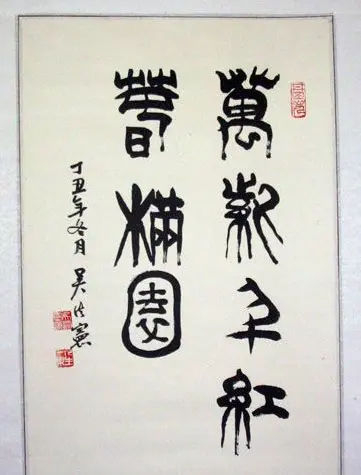 萬紫千紅
春滿園
丁丑年冬月 吴法憲